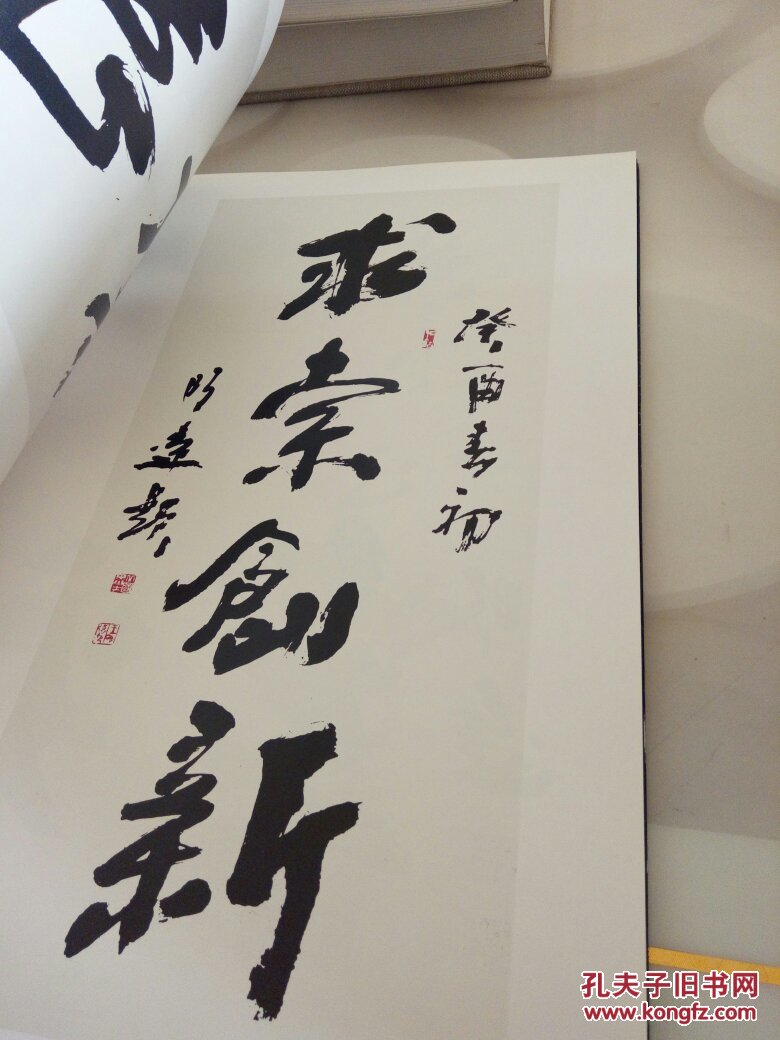 癸酉春初
求索創新
明達書
孔夫子旧书网
www.kongfz.com